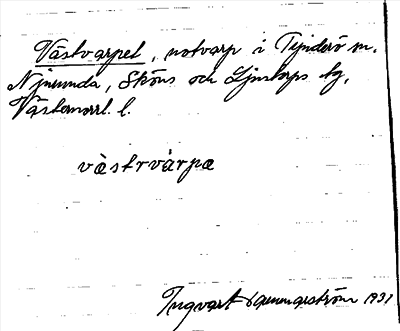 Västvarpet, notvarp i Tynderö m.
Njurunda, Sköns och Ljustorps tg,
Västernorrl. l.
västrvarpa
Ingvart Hammarström 1931